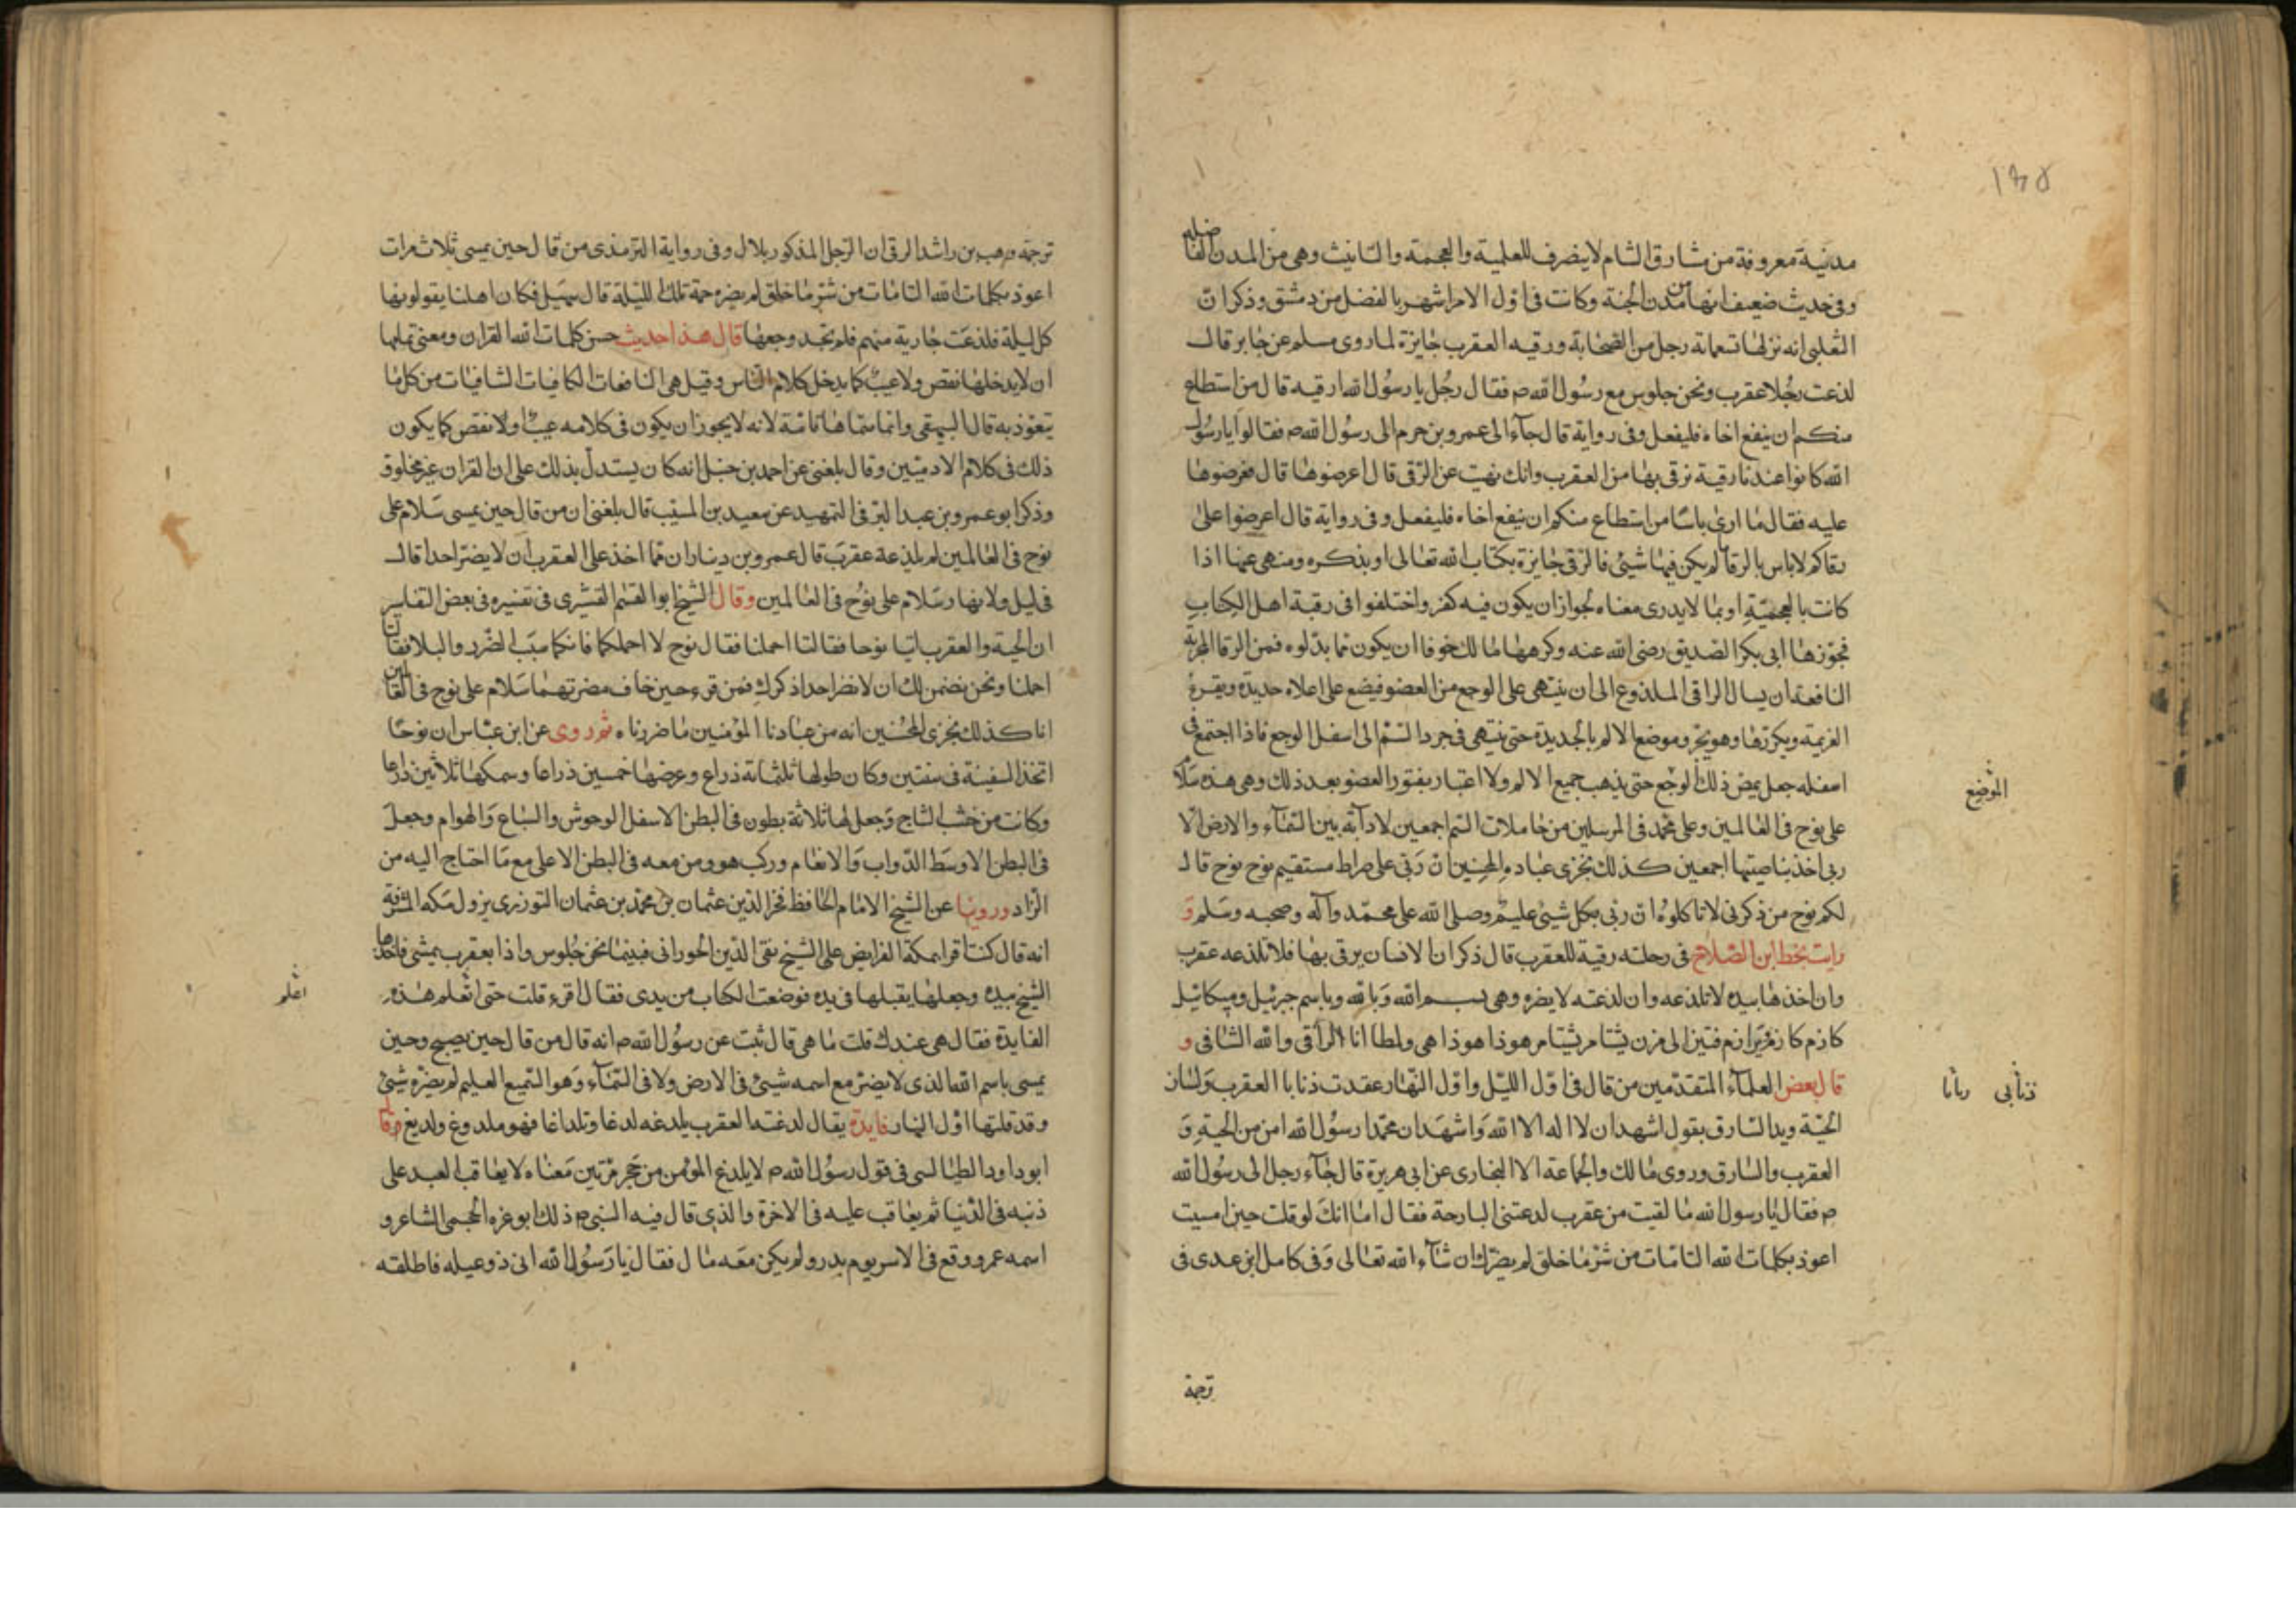 ١٣٥
مدنية معروفة من مشارق الشام لا ينصرف للعلمية والعجمة والتانيث وهى من المدن الفاضله
وفى حديث ضعيف انها من مدن الجنة وكانت فى اول الامر اشهر بالفضل من دمشق وذكر ان
الثعلبى انه نزلها تسعماية رجل من الصحابة ورقيه العقرب جايزة لما روى مسلم عن جابر قال
لذعت رجلا عقرب ونحن جلوس مع رسول الله ص فقال رجل يا رسول الله ارقيه قال من استطاع
منكم ان ينفع اخاه فليفعل وفى رواية قال جاء الى عمرو بن حزم الى رسول الله ص فقالوا يا رسول
الله كانوا عندنا رقية نرقى بها من العقرب وانك نهيت عن الرقى قال اعرضوها قال فعرضوها
عليه فقال ما ارى باسا من استطاع منكم ان ينفع اخاه فليفعل وفى رواية قال اعرضوا على
رقاكم لا باس بالرقا ما لم يكن فيها شيئ فالرقى جايزة بكتاب الله تعالى او بذكره ومنهى عنها اذا
كانت بالعجميّة او بما لا يدرى معناه لجواز ان يكون فيه كفر واختلفوا فى رقية اهل الكتاب
فجوزها ابى بكر الصديق رضى الله عنه وكرهها مالك خوفا ان يكون مما بدلوه فمن الرقا المجربة
النافعة ان يسال الراقى الملذوع الى ان ينتهى على الوجع من العضو فيضع على اعلاه حديدة ويقرء
العزيمة ويكررها وهو يجرد موضع الالم بالحديدة حتى ينتهى فى جرد السم الى اسفل الوجع فاذا اجتمع فى
اسفله جعل يمص ذلك الوجع حتى يذهب جميع الالم ولا اعتبار بفتور العضو بعد ذلك وهى هذه سلام
الموضع
على نوح فى العالمين وعلى محمد فى المرسلين من حاملات السم اجمعين لا دابة بين السماء والارض الا
ربى اخذ بناصيتها اجمعين كذلك نجزى عباده المحسنين ان ربى على صراط مستقيم نوح نوح قال
لكم نوح من ذكرنى لا تاكلوه ان ربى بكل شيئ عليم وصلى الله على محمد وآله وصحبه وسلم و
رايت بخط ابن الصلاح فى رحلته رقية للعقرب قال ذكر ان الانسان يرقى بها فلا تلذعه عقرب
وان اخذها بيده لا تلذعه وان لذعته لا يضره وهى بسم الله وبالله وباسم جبرئيل وميكائيل
انا الراقى والله الشافى و
قال بعض العلماء المتقدمين من قال فى اول الليل واول النهار عقدت ذنابا العقرب ولسان
ذنابى
الحيّة ويد السارق بقول اشهد ان لا اله الا الله واشهد ان محمدا رسول الله امن من الحية و
العقرب والسارق وروى مالك والجماعة الا البخارى عن ابى هريرة قال جاء رجل الى رسول الله
ص فقال يا رسول الله ما لقيت من عقرب لدعتنى البارحة فقال اما انك لو قلت حين امسيت
اعوذ بكلمات الله التامات من شر ما خلق لم يضرك ان شاء الله تعالى وفى كامل ابن عدى فى
ترجمة
ترجمة وهب بن راشد الرقى ان الرجل المذكور بلال وفى رواية الترمذى من قال حين يمسى ثلاث مرات
اعوذ بكلمات الله التامات من شر ما خلق لم يضره حمة تلك الليلة قال سهيل فكان اهلنا يقولونها
كل ليلة فلذعت جارية منهم فلم تجد وجعها قال هذا حديث حسن كلمات الله القران ومعنى تمامها
ان لا يدخلها نقص ولا عيب كما يدخل كلام الناس وقيل هى النافعات الكافيات الشافيات من كل ما
يتعوذ به قال البيهقى وانما سماها تامّة لانه لا يجوز ان يكون فى كلامه عيب ولا نقص كما يكون
ذلك فى كلام الادميين وقال بلغنى عن احمد بن حنبل انه كان يستدل بذلك على ان القران غير مخلوق
وذكر ابو عمرو بن عبد البر فى التمهيد عن سعيد بن المسيب قال بلغنى ان من قال حين يمسى سلام على
نوح فى العالمين لم يلذعه عقرب قال عمرو بن دينار ان مما اخذ على العقرب ان لا يضر احدا قال
فى ليل ولا نهار سلام على نوح فى العالمين وقال الشيخ ابو القسم القشرى فى تفسيره فى بعض التفاسير
ان الحية والعقرب اتيا نوحا فقالتا احملنا فقال نوح لا احملكما فانكما سبب الضرر والبلا فقالتا
احملنا ونحن نضمن لك ان لا نضر احدا ذكرك فمن قرء حين خاف مضرتهما سلام على نوح فى العالمين
انا كذلك نجزى المحسنين انه من عبادنا المؤمنين ما ضرتاه ثم روى عن ابن عباس ان نوحا
اتخذ السفينة فى سنتين وكان طولها ثلثماتة ذراع وعرضها خمسين ذراعا وسمكها ثلاثين ذراعا
وكانت من خشب الساج وجعل لها ثلاثة بطون فى البطن الاسفل الوحوش والسباع والهوام وجعل
فى البطن الاوسط الدواب والانعام وركب هو ومن معه فى البطن الاعلى مع ما احتاج اليه من
الزاد وروينا عن الشيخ الامام الحافظ فخر الدين عثمان بن محمد بن عثمان التوزرى نزول مكه المشرفة
انه قال كنت اقرا بمكة الفرايض على الشيخ تقى الدين الحورانى فبينما نحن جلوس واذا بعقرب يمشى فاخذها
الشيخ بيده وجعلها يقبلها فى يده فوضعت الكتاب من يدى فقال اقرء قلت حتى اتعلم هذه
اعلم
الفايدة فقال هى عندك قلت ما هى قال ثبت عن رسول الله ص انه قال من قال حين يصبح وحين
يمسى باسم الله الذى لا يضر مع اسمه شيئ فى الارض ولا فى السماء وهو السميع العليم لم يضره شيئ
وقد قلتها اول النهار فايدة يقال لدغته العقرب يلدغه لدغا وتلداغا فهو ملدوغ ولديغ وقال
ابو داود الطيالسى فى قول رسول الله ص لا يلدغ المؤمن من جحر مرتين معناه لا يعاقب العبد على
ذنبه فى الدنيا ثم يعاقب عليه فى الاخرة والذى قال فيه النبى ص ذلك ابو عزه الجمحى الشاعر و
اسمه عمرو وقع فى الاسر يوم بدر ولم يكن معه مال فقال يا رسول الله انى ذو عيله فاطلقه